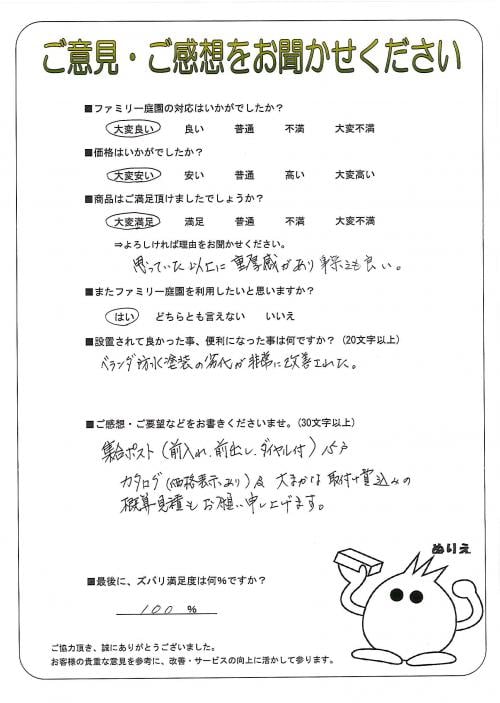 ご意見・ご感想をお聞かせください
■ファミリー庭園の対応はいかがでしたか？
大変良い 良い 普通 不満 大変不満
■価格はいかがでしたか？
大変安い 安い 普通 高い 大変高い
■商品はご満足頂けましたでしょうか？
大変満足 満足 普通 不満 大変不満
⇒よろしければ理由をお聞かせください。
思っていた以上に重厚感があり見栄えも良い。
■またファミリー庭園を利用したいと思いますか？
はい どちらとも言えない いいえ
■設置されて良かった事、便利になった事は何ですか？（20文字以上）
ベランダ防水塗装の劣化が非常に改善された。
■ご感想・ご要望などをお書きくださいませ。（30文字以上）
集合ポスト（前入れ、前出し、ダイヤル付）15戸
カタログ（価格表示あり）及 大まかな取付け費込みの
概算見積もお願い申し上げます。
ぬりえ
■最後に、ズバリ満足度は何％ですか？
100 ％
ご協力頂き、誠にありがとうございました。
お客様の貴重な意見を参考に、改善・サービスの向上に活かして参ります。